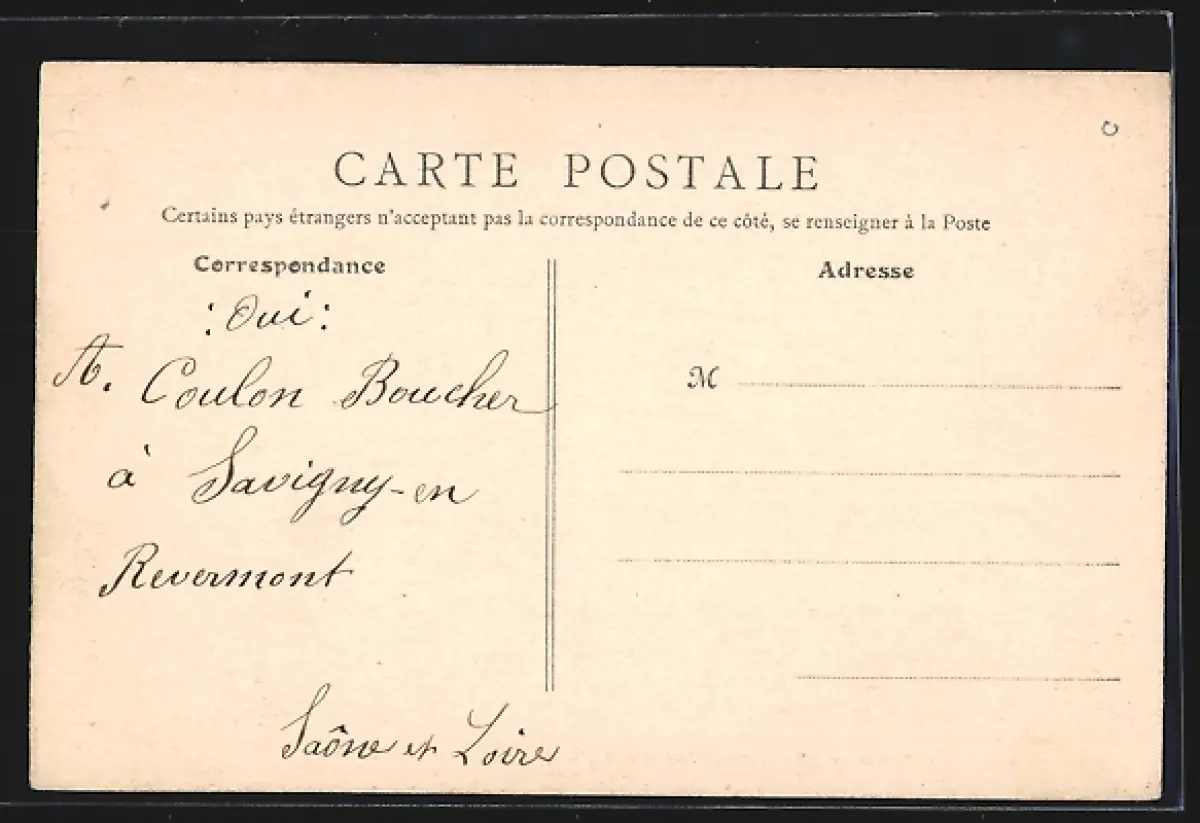 CARTE POSTALE
Certains pays étrangers n'acceptant pas la correspondance de ce côté, se renseigner à la Poste
Correspondance
: Oui :
A. Coulon Boucher
à Savigny-en
Revermont
Saône et Loire
Adresse
M